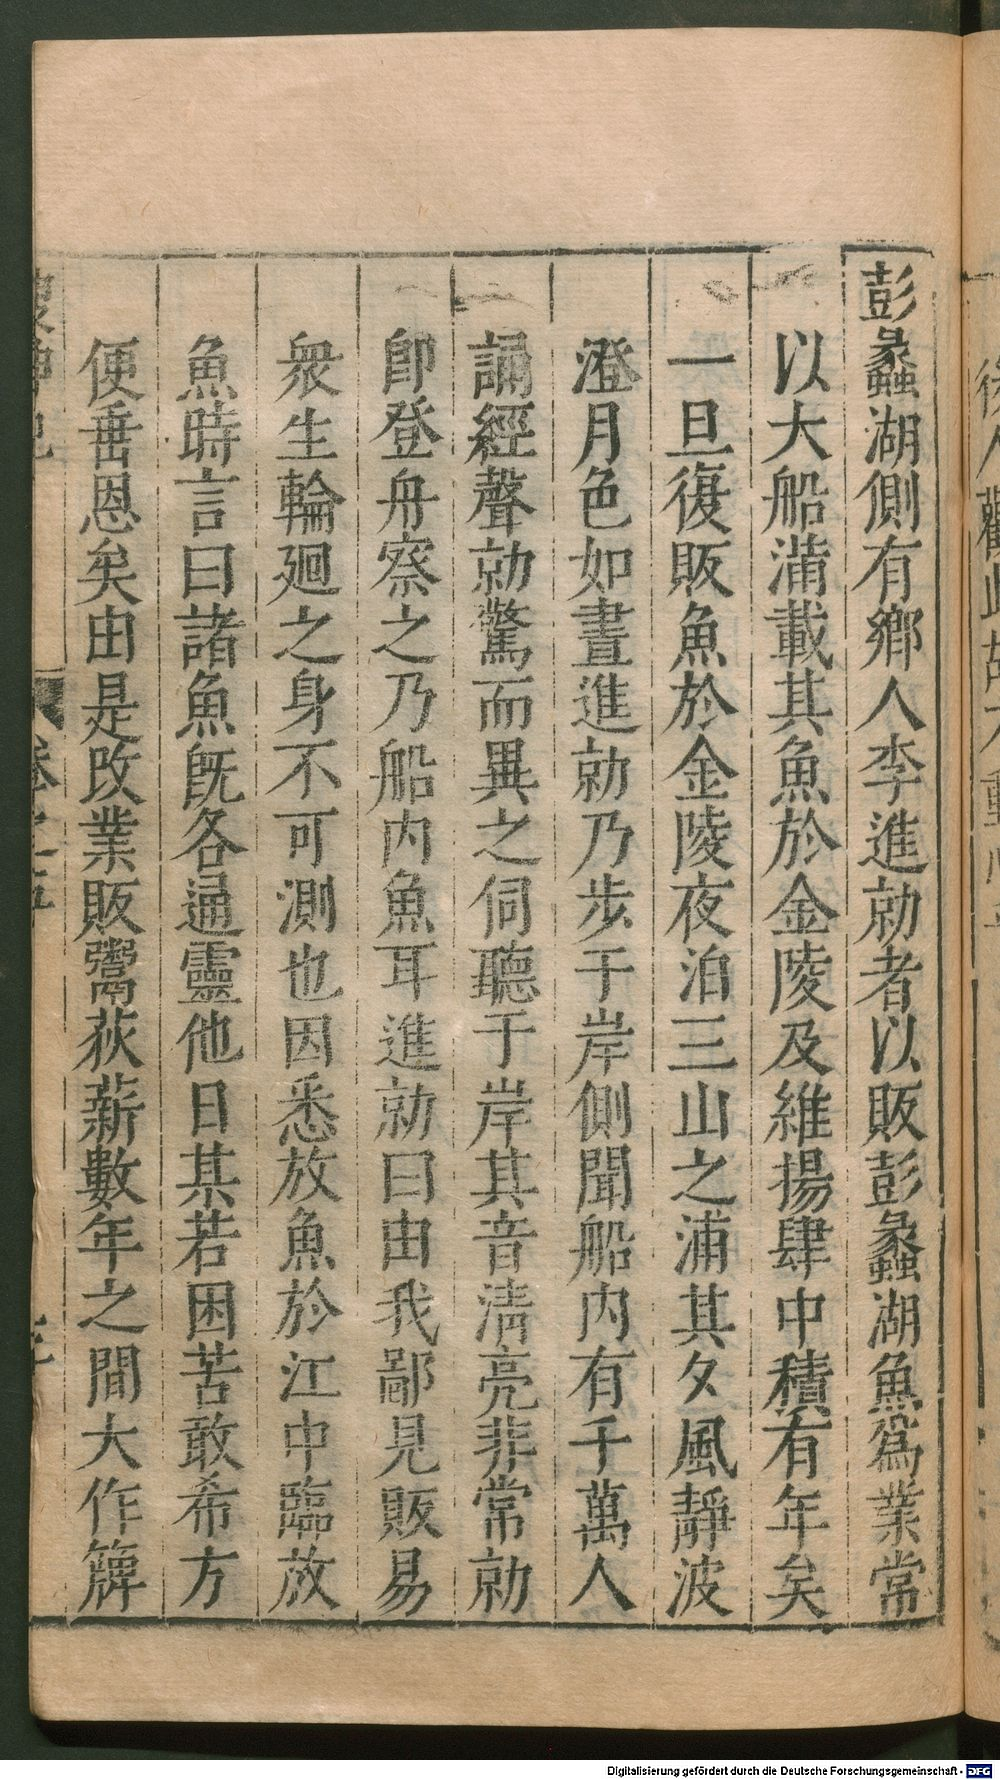 彭蠡湖側有鄉人李進勍者以販彭蠡湖魚爲業常
以大船滿載其魚於金陵及維揚肆中積有年矣
一旦復販魚於金陵夜泊三山之浦其夕風靜波
澄月色如晝進勍乃步于岸側聞船内有千萬人
誦經聲勍驚而異之伺聽于岸其音清亮非常勍
卽登舟察之乃船内魚耳進勍曰由我鄙見販易
衆生輪廻之身不可測也因悉放魚於江中臨放
魚時言曰諸魚旣各通靈他日某若困苦敢希方
便垂恩矣由是改業販鬻荻薪數年之間大作簰
Digitalisierung gefördert durch die Deutsche Forschungsgemeinschaft - DFG